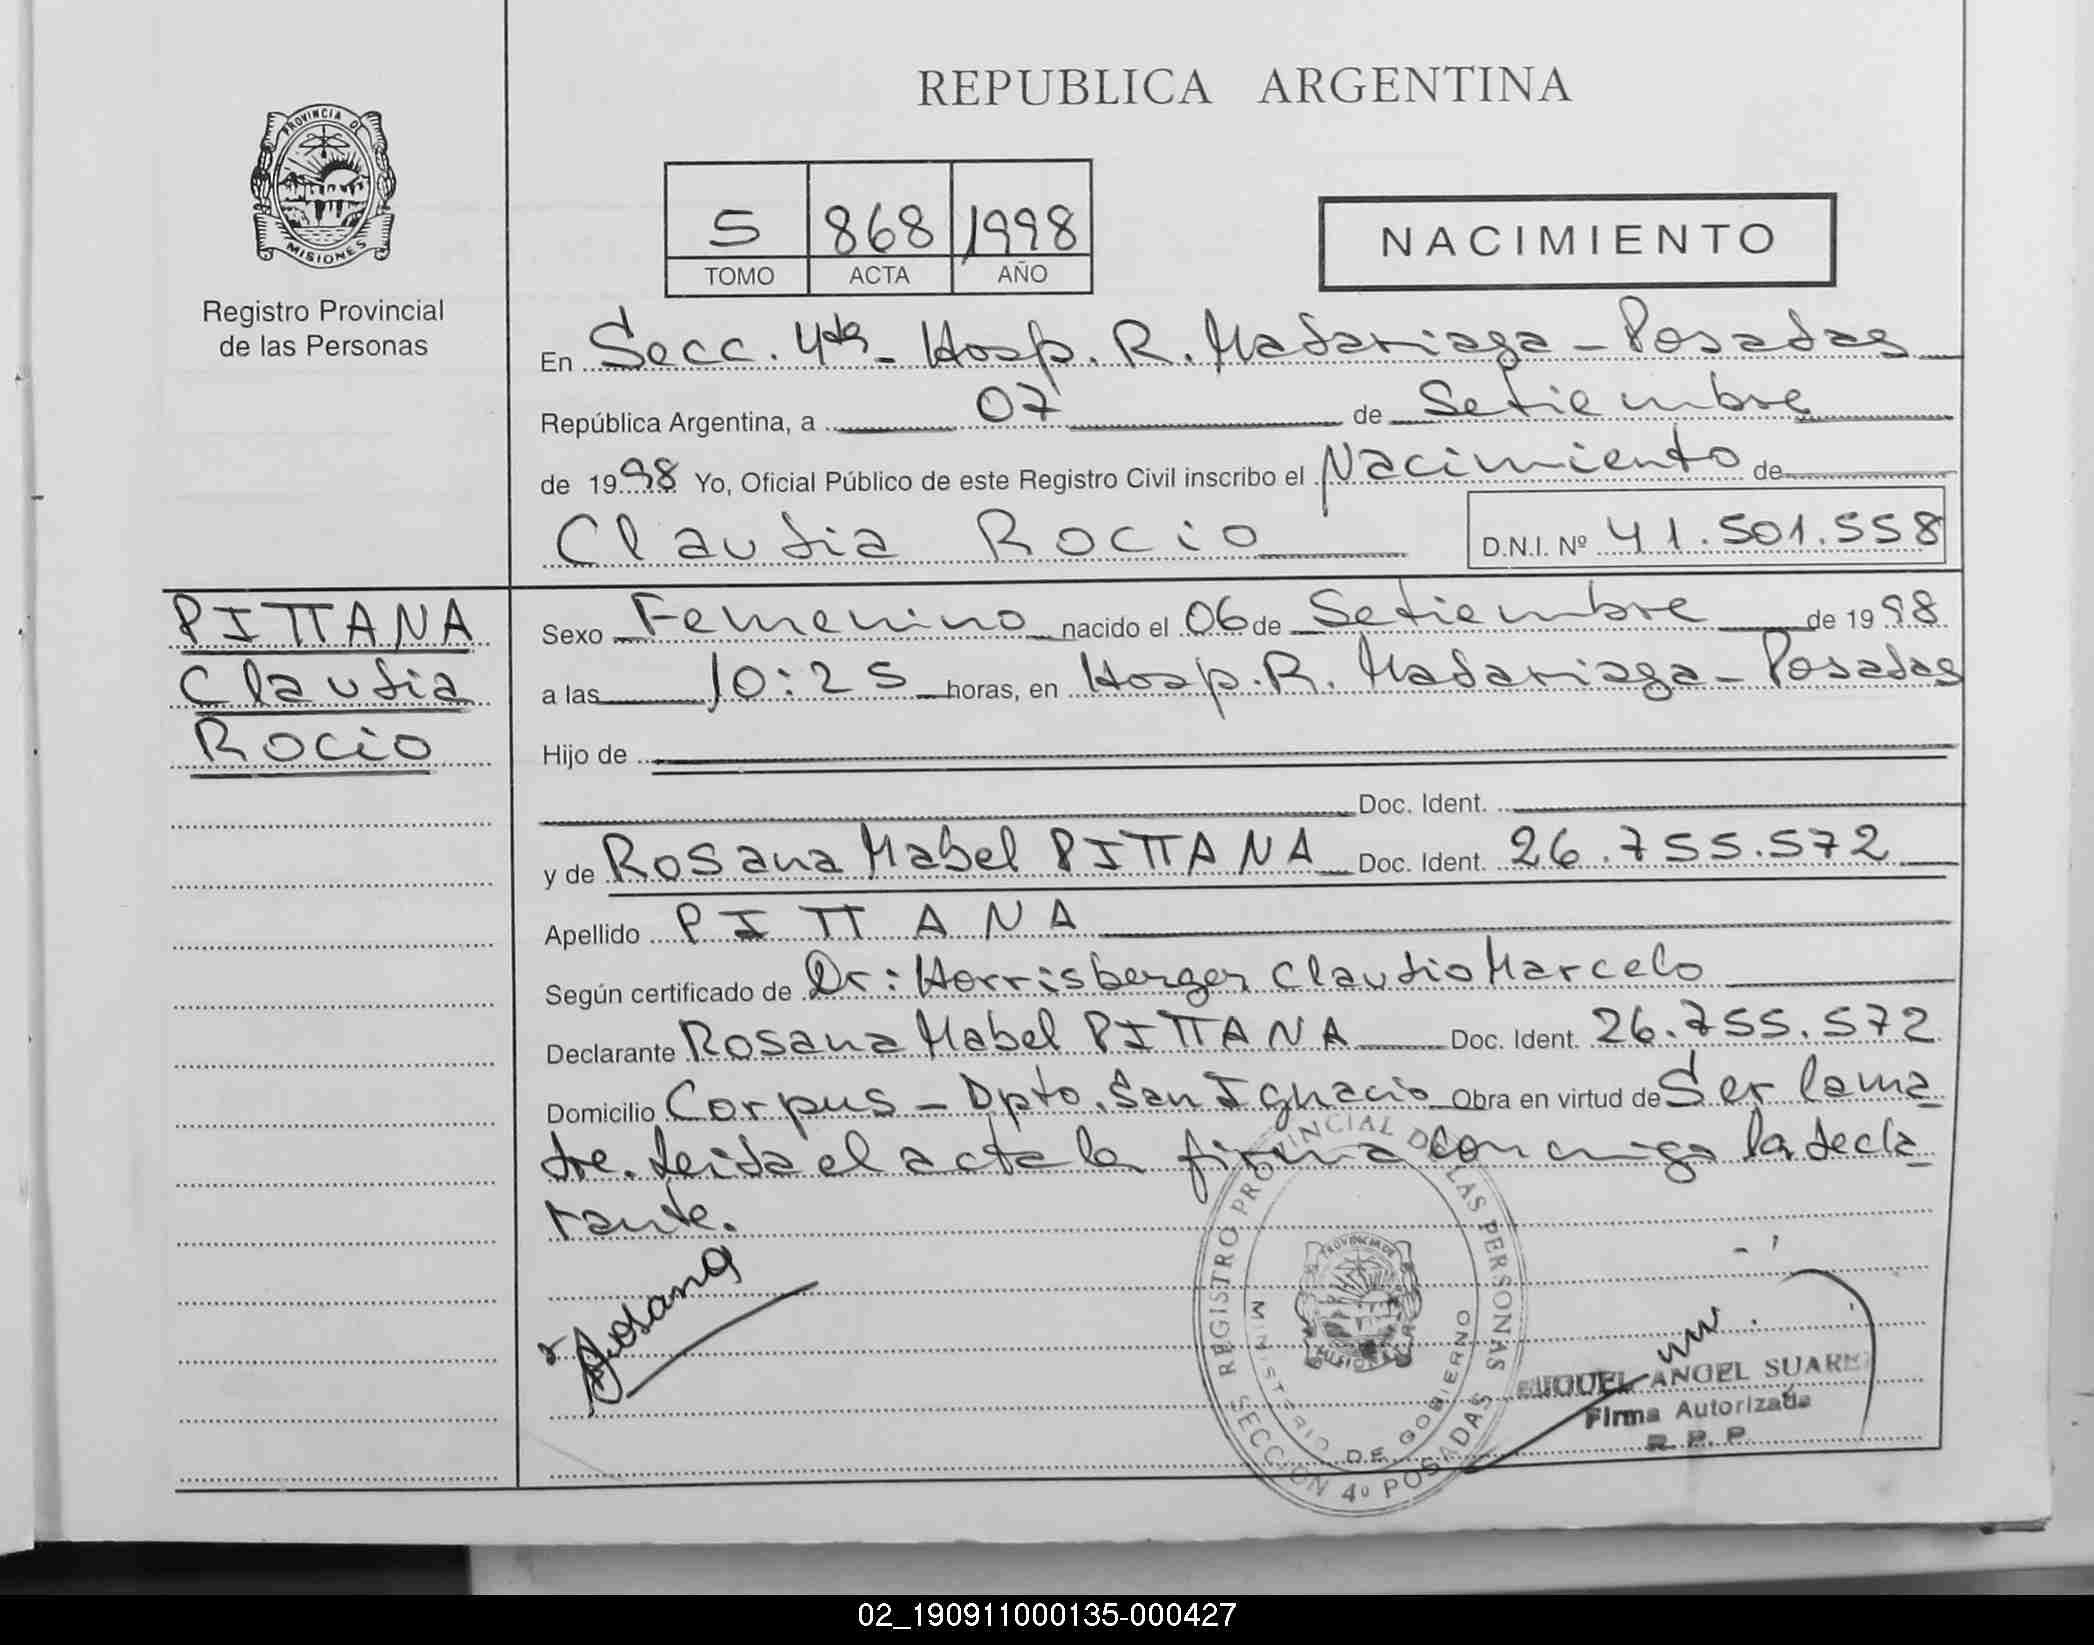 REPUBLICA ARGENTINA
PROVINCIA DE
MISIONES
Registro Provincial
de las Personas
5 868 1998
TOMO ACTA AÑO
NACIMIENTO
En Secc. 4ta - Hosp. R. Madariaga - Posadas
República Argentina, a 07 de Setiembre
de 1998 Yo, Oficial Público de este Registro Civil inscribo el Nacimiento de
Claudia Rocio D.N.I. Nº 41.501.558
PITTANA
Claudia
Rocio
Sexo Femenino nacido el 06 de Setiembre de 1998
a las 10:25 horas, en Hosp. R. Madariaga - Posadas
Hijo de
Doc. Ident.
y de Rosana Mabel PITTANA Doc. Ident. 26.755.572
Apellido PITTANA
Según certificado de Dr: Horrisberger Claudio Marcelo
Declarante Rosana Mabel PITTANA Doc. Ident. 26.755.572
Domicilio Corpus - Dpto. San Ignacio Obra en virtud de Ser la ma
dre. Leida el acta la firma conmigo la decla
rante.
Rosana
REGISTRO PROVINCIAL DE LAS PERSONAS
SECCION 4º POSADAS
MINISTERIO DE GOBIERNO
PROVINCIA DE
MISIONES
MIGUEL ANGEL SUAREZ
Firma Autorizada
R. P. P.
02_190911000135-000427